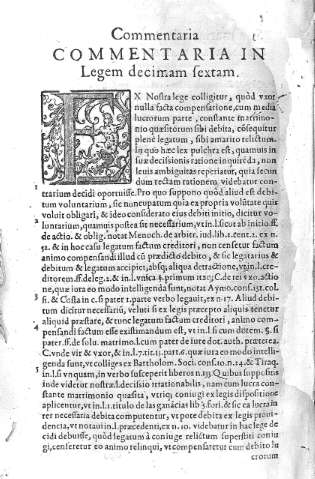 Commentaria
COMMENTARIA IN
Legem decimam sextam.
EX Nostra lege colligitur, quòd vxor
nulla facta compensatione, cum media
lucrorum parte, constante matrimo-
nio quæsitorum sibi debita, cōsequitur
plenè legatum, sibi à marito relictum.
In quo hæc lex pulchra est, quamuis in
suæ decisionis ratione inquirēda, non
leuis ambiguitas reperiatur, quia secun
dum rectam rationem videbatur con-
trarium decidi oportuisse. Pro quo suppono quòd aliud est debi-
tum voluntarium, sic nuncupatum quia ex propria volūtate quis
voluit obligari, & ideo considerato eius debiti initio, dicitur vo-
luntarium, quamuis postea sit necessarium, vt in l. sicut ab initio ff.
de actio. & oblig. notat Menoch. de arbit. iud. lib. 2. cent. 1. ex n.
51. & in hoc casu legatum factum creditori, non censetur factum
animo compensandi illud cū prædicto debito, & sic legatarius &
debitum & legatum accipiet, absq; aliqua detractione, vt in l. cre-
ditorem. ff. de leg. 2. & in l. vnica §. primum C. de rei vxo. actio
ne, quæ iura eo modo intelligenda sunt, notat Aymo. cons. 131. col.
fi. & Costa in c. si pater 1. parte verbo legauit, ex n. 17. Aliud debi-
tum dicitur necessariũ, veluti si ex legis præcepto aliquis tenetur
aliquid præstare, & tunc legatum factum creditori, animo com-
pensandi factum esse existimandum est, vt in l. si cum dotem. §. si
pater. ff. de solu. matrimo. l. cum pater de iure dot. auth. præterea.
C. vnde vir & vxor, & in l. 7. tit. 13. part. 6. quæ iura eo modo intelli-
genda sunt, vt colliges ex Bartholom. Soci. consi. 10. n. 14. & Tiraq.
in l. si vnquam, in verbo susceperit liberos n. 133 Quibus suppositis
inde videtur nostræ l. decisio irrationabilis, nam cum lucra con-
stante matrimonio quæsita, vtriq; coniugi ex legis dispositione
aplicentur, vt in l. 1. titulo de las ganācias lib. 3. fori. & sic ea lucra in-
ter necessaria debita computentur, vt pote debita ex legis proui-
dencia, vt notaui in l. præcedenti, ex n. 10. videbatur in hac lege de
cidi debuisse, quòd legatum à coniuge relictum superstiti coniu
gi, censeretur eo animo relinqui, vt compensaretur cum debito lu
crorum